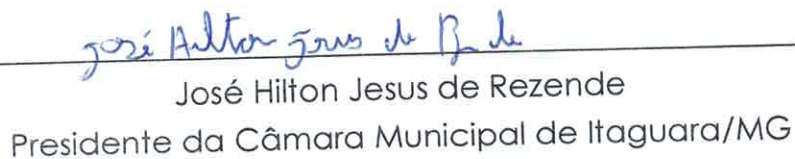 José Hilton Jesus de
José Hilton Jesus de Rezende
Presidente da Câmara Municipal de Itaguara/MG